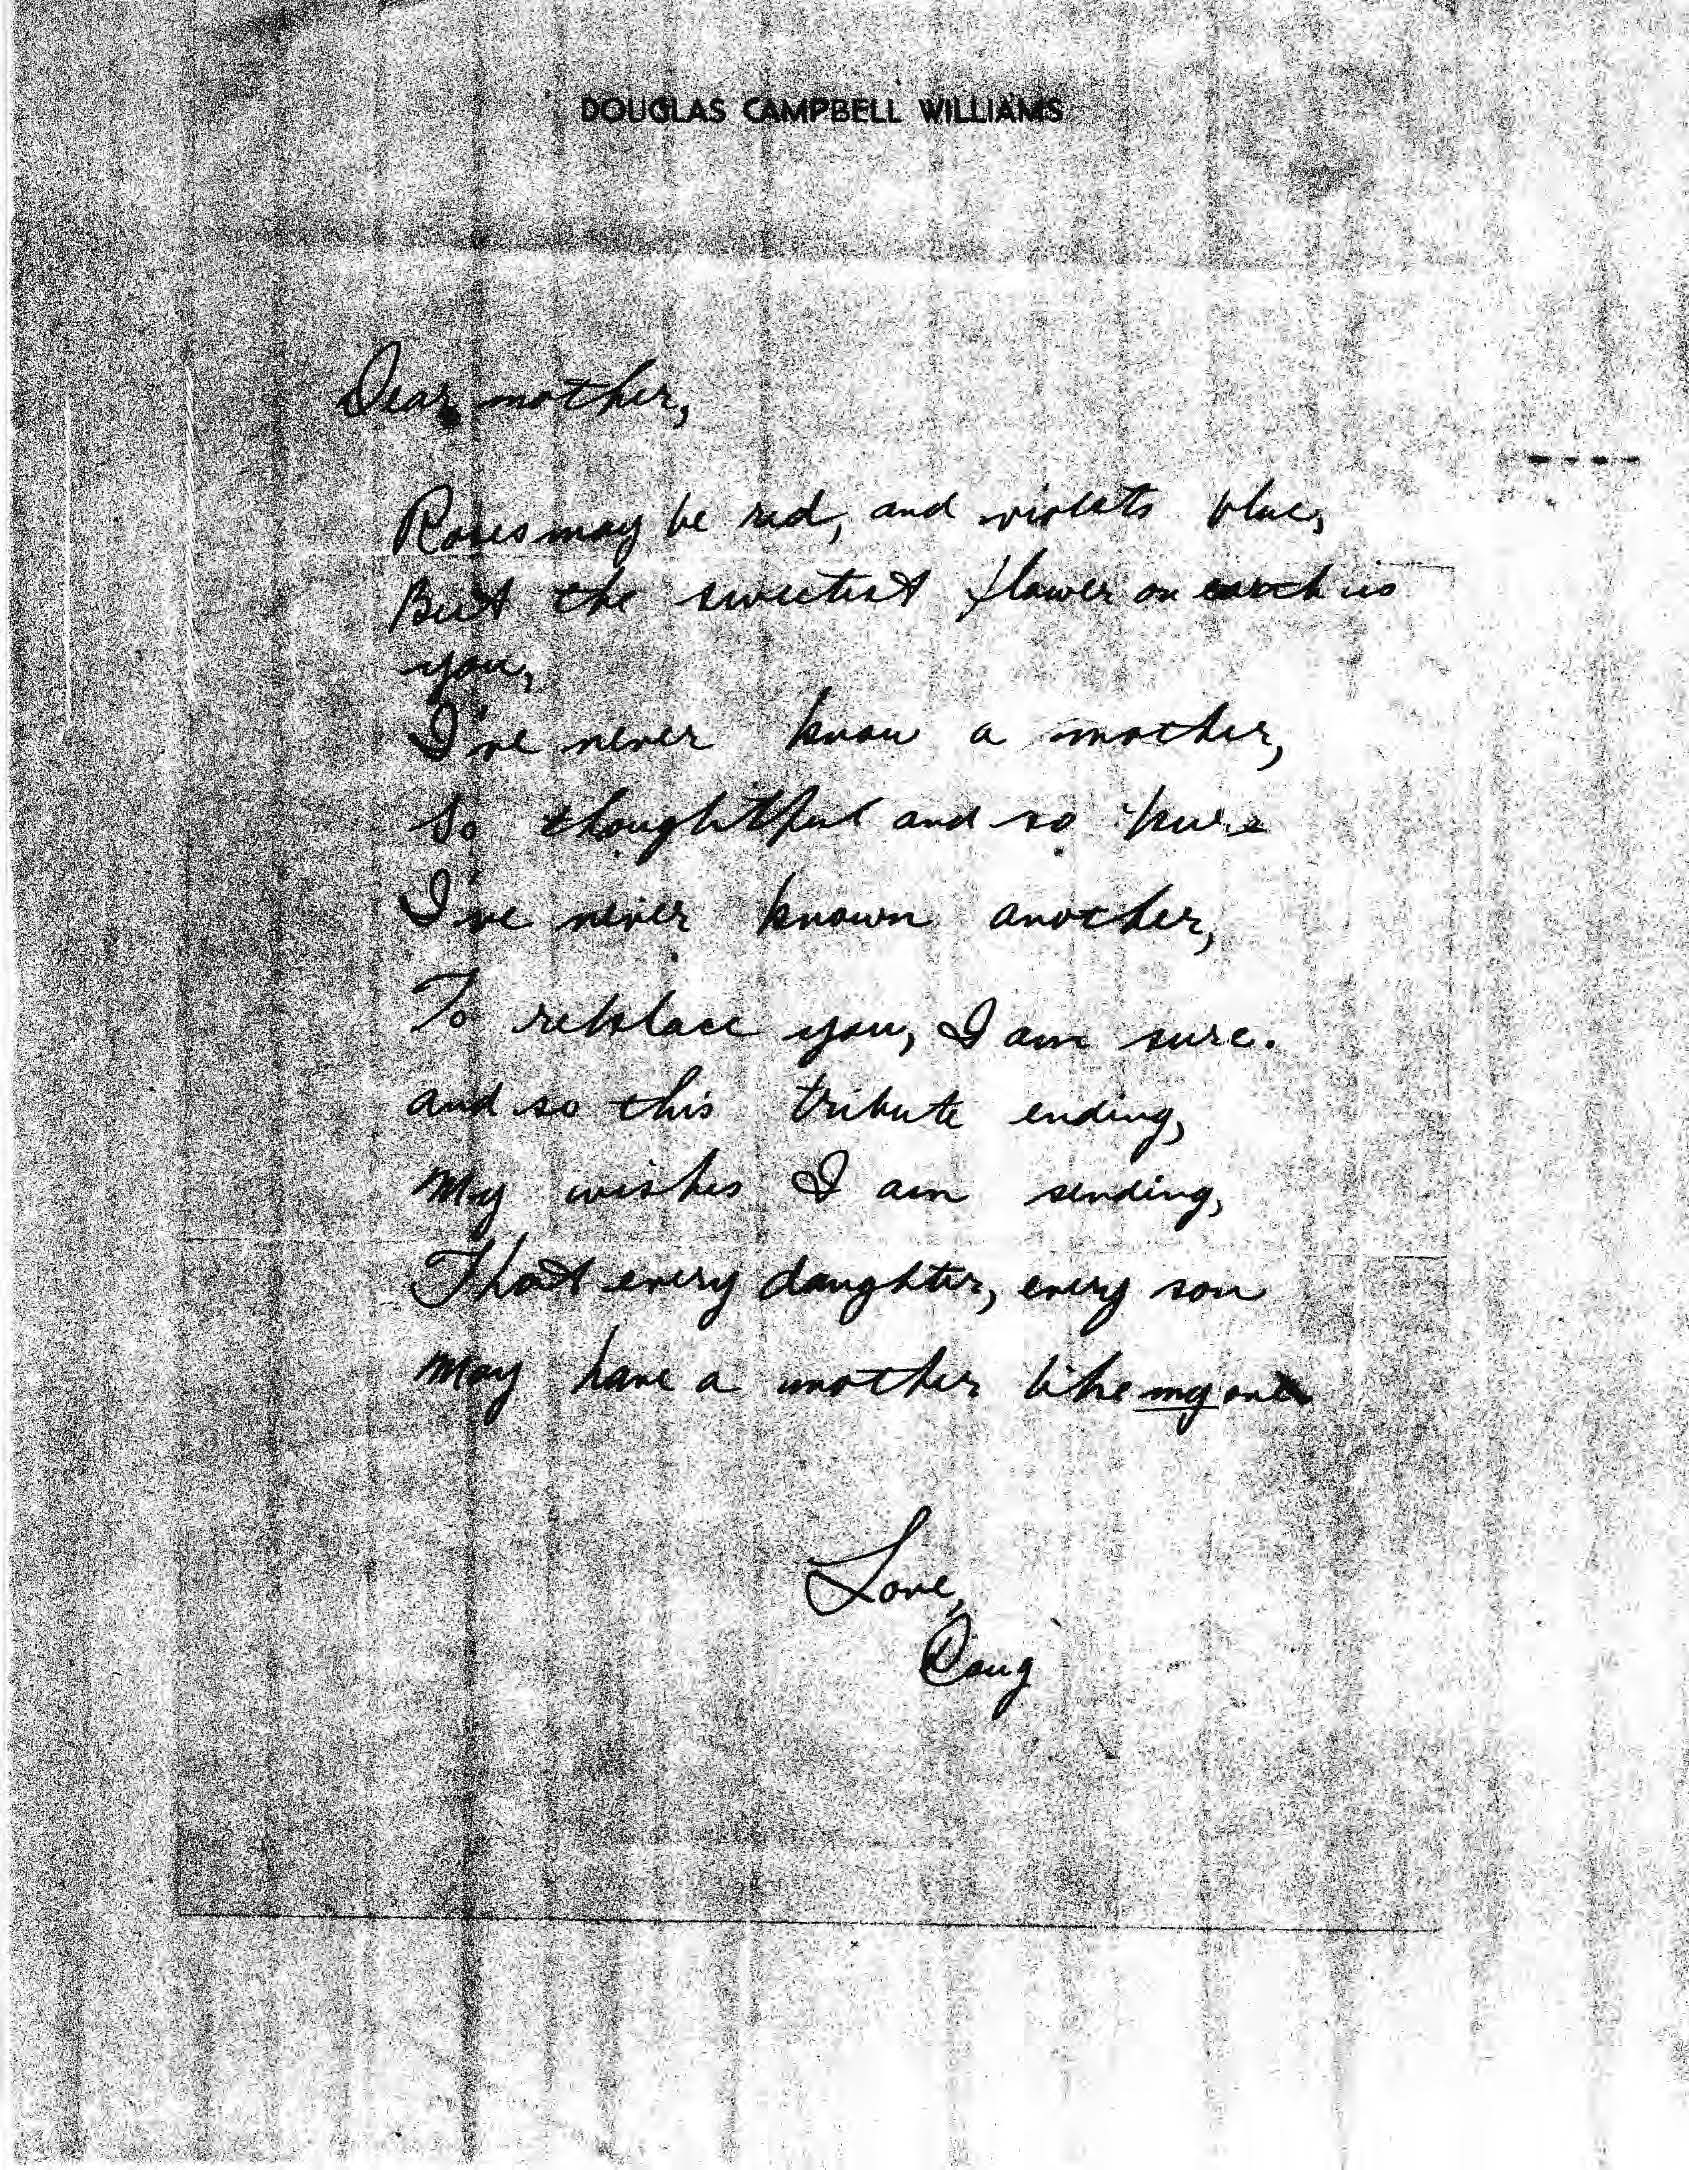 DOUGLAS CAMPBELL WILLIAMS
Dear mother,
Roses may be red, and violets blue,
But the sweetest flower on earth is
you,
I've never know a mother,
So thoughtful and so pure
I've never known another,
To replace you, I am sure.
and so this tribute ending,
My wishes I am sending,
That every daughter, every son
May have a mother like my one
Love,
Doug